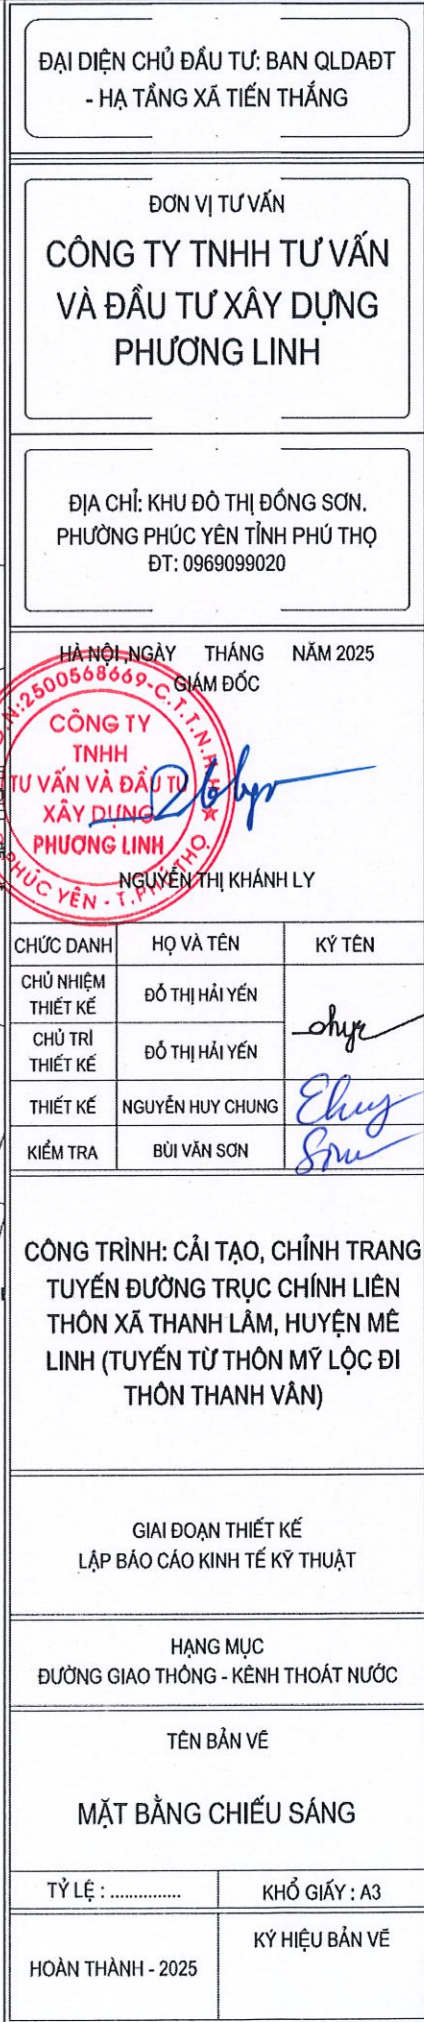 ĐẠI DIỆN CHỦ ĐẦU TƯ: BAN QLDAĐT
- HẠ TẦNG XÃ TIẾN THẮNG
ĐƠN VỊ TƯ VẤN
CÔNG TY TNHH TƯ VẤN
VÀ ĐẦU TƯ XÂY DỰNG
PHƯƠNG LINH
ĐỊA CHỈ: KHU ĐÔ THỊ ĐỒNG SƠN.
PHƯỜNG PHÚC YÊN TỈNH PHÚ THỌ
ĐT: 0969099020
HÀ NỘI ,NGÀY THÁNG NĂM 2025
GIÁM ĐỐC
N:2500568669-C.T.T.N.H.H
CÔNG TY
TNHH
TƯ VẤN VÀ ĐẦU TƯ
XÂY DỰNG
PHƯƠNG LINH
PHÚC YÊN - T. PHÚ THỌ
NGUYỄN THỊ KHÁNH LY
CHỨC DANH HỌ VÀ TÊN KÝ TÊN
CHỦ NHIỆM
THIẾT KẾ
ĐỖ THỊ HẢI YẾN
CHỦ TRÌ
THIẾT KẾ
ĐỖ THỊ HẢI YẾN
THIẾT KẾ NGUYỄN HUY CHUNG
KIỂM TRA BÙI VĂN SƠN
CÔNG TRÌNH: CẢI TẠO, CHỈNH TRANG
TUYẾN ĐƯỜNG TRỤC CHÍNH LIÊN
THÔN XÃ THANH LÂM, HUYỆN MÊ
LINH (TUYẾN TỪ THÔN MỸ LỘC ĐI
THÔN THANH VÂN)
GIAI ĐOẠN THIẾT KẾ
LẬP BÁO CÁO KINH TẾ KỸ THUẬT
HẠNG MỤC
ĐƯỜNG GIAO THÔNG - KÊNH THOÁT NƯỚC
TÊN BẢN VẼ
MẶT BẰNG CHIẾU SÁNG
TỶ LỆ : ............... KHỔ GIẤY : A3
KÝ HIỆU BẢN VẼ
HOÀN THÀNH - 2025